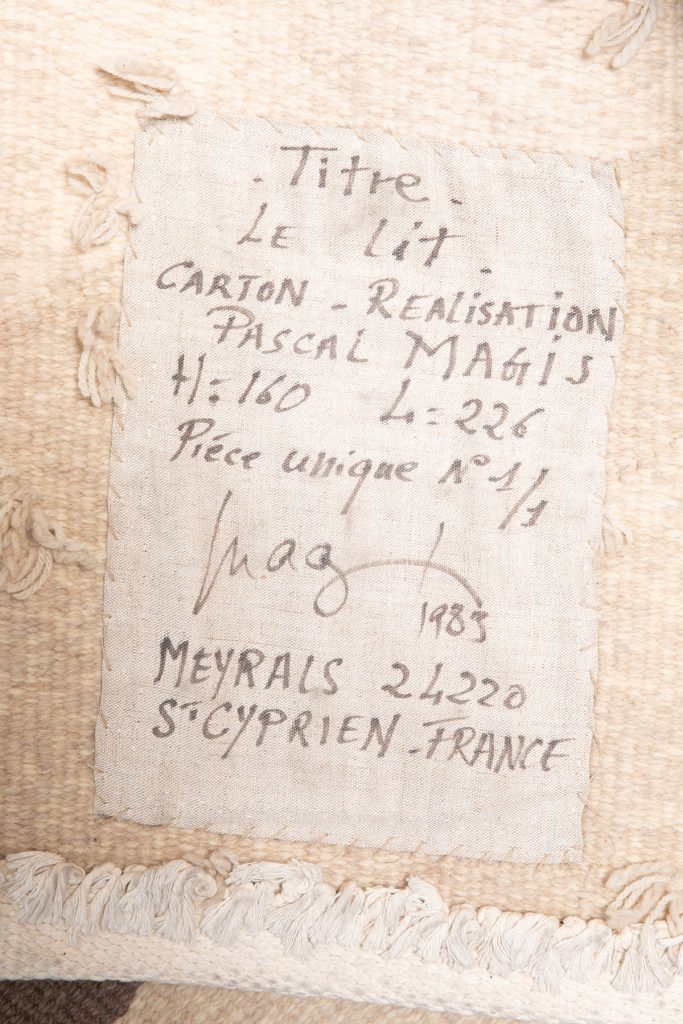 - Titre -
LE Lit -
CARTON - REALISATION
PASCAL MAGIS
H: 160 L: 226
Piéce unique N° 1/1
Mag
MEYRALS 24220
ST CYPRIEN - FRANCE